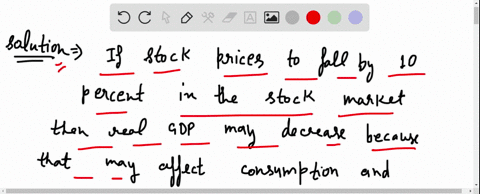 solution => If stock prices to fall by 10
percent in the stock market
then real GDP may decrease because
that may affect consumption and